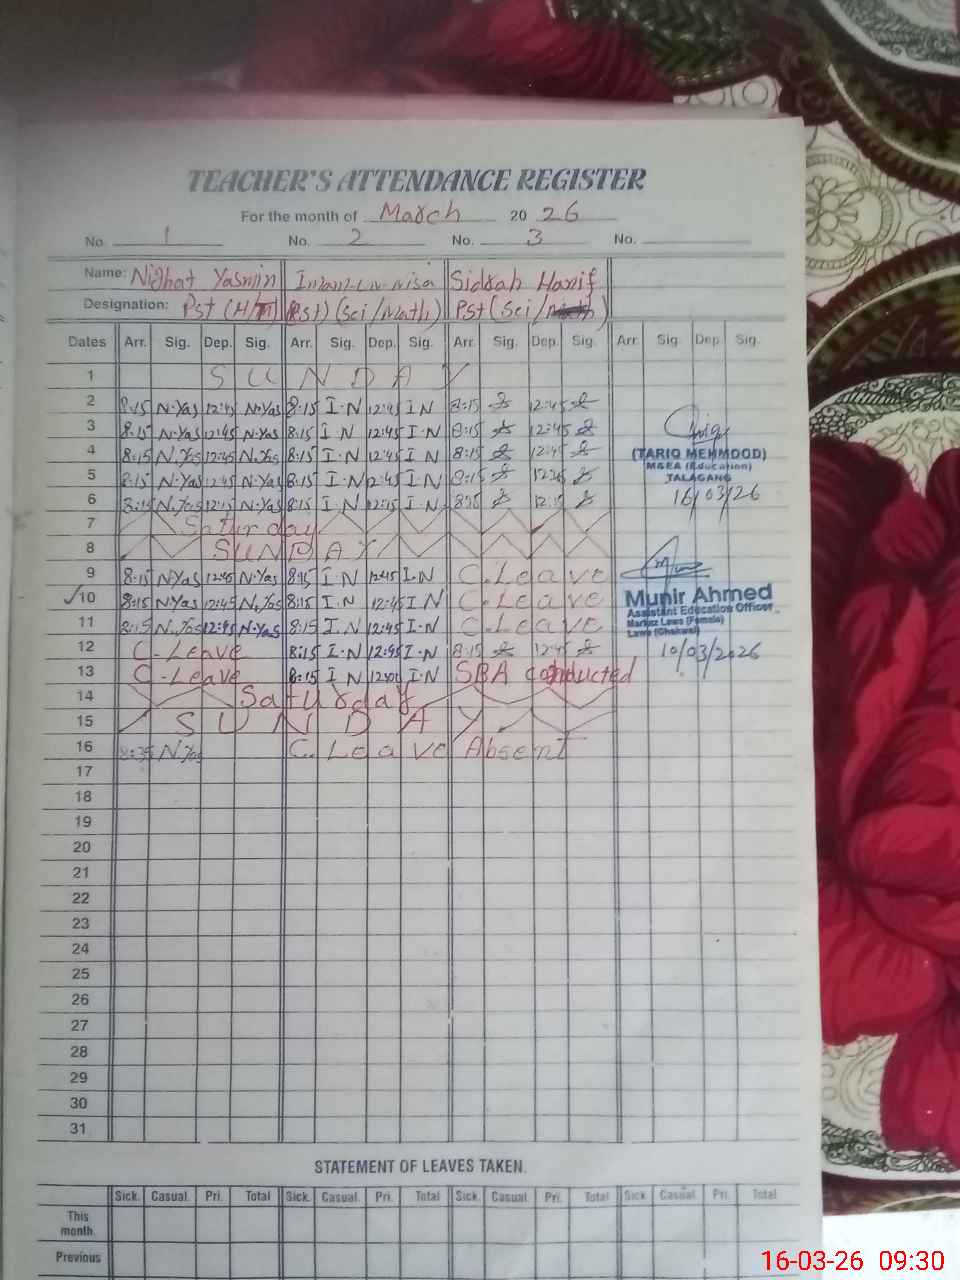 TEACHER'S ATTENDANCE REGISTER
For the month of March 2026
No. 1 No. 2 No. 3 No.
Name: Nighat Yasmin Iman-un-nisa Sidrah Hanif
Designation: Pst (H/T) (Pst) (Sci/Math) Pst (Sci/
Dates Arr. Sig. Dep. Sig. Arr. Sig. Dep. Sig. Arr. Sig. Dep. Sig. Arr. Sig. Dep. Sig.
1 SUNDAY
2 8:15 N.Yas 12:45 N.Yas 8:15 I.N 12:45 I.N 8:15 12:45
3 8:15 N.Yas 12:45 N.Yas 8:15 I.N 12:45 I.N 8:15 12:45
4 8:15 N.Yas 12:45 N.Yas 8:15 I.N 12:45 I.N 8:15 12:45
5 8:15 N.Yas 12:45 N.Yas 8:15 I.N 12:45 I.N 8:15
6 8:15 N.Yas 12:15 N.Yas 8:15 I.N 12:15 I.N 12:15
7 Saturday
8 SUNDAY
9 8:15 N.Yas 12:45 N.Yas 8:15 I.N 12:45 I.N C.Leave
10 8:15 N.Yas 12:45 N.Yas 8:15 I.N 12:45 I.N C.Leave
11 8:15 N.Yas 12:45 N.Yas 8:15 I.N 12:45 I.N C.Leave
12 C-Leave 8:15 I.N 12:45 I.N 8:15 12:45
13 C-Leave 8:15 I.N I.N SBA conducted
14 Saturday
15 SUNDAY
16 8:35 N.Yas C.Leave Absent
17
18
19
20
21
22
23
24
25
26
27
28
29
30
31
(TARIQ MEHMOOD)
M&EA (Education)
TALAGANG
16/03/26
Munir Ahmed
Assistant Education Officer
Markaz Lawa (Female)
Lawa (Chakwal)
10/03/2026
STATEMENT OF LEAVES TAKEN.
Sick. Casual. Pri. Total Sick. Casual. Pri. Total Sick. Casual. Pri. Total Sick. Casual. Pri. Total
This month
Previous
16-03-26 09:30